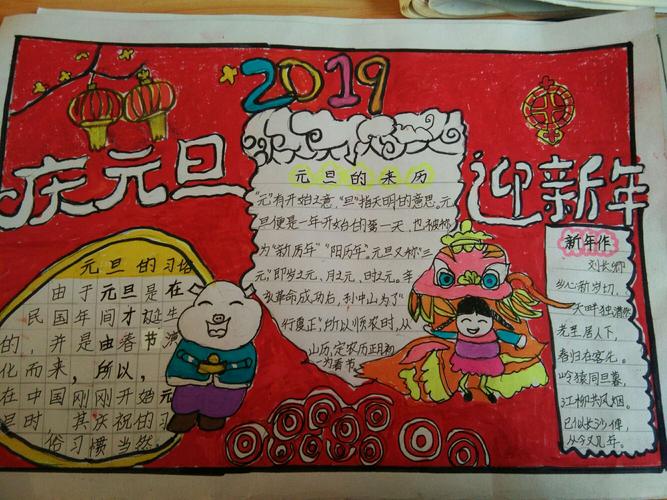 2019
庆元旦
迎新年
元旦的来历
"元"有开始之意，"旦"指天明的意思。元
旦便是一年开始台的第一天，也被称
为"新历年""阳历年"。元旦又称"三
元"，即岁之元、月之元、时之元。辛
亥革命成功后，孙中山为了"
行夏正"，所以顺农时，从
山历，定农历正月初
为春节
元旦的习俗
由于元旦是在
民国年间才诞生
的，并是由春节演
化而来，所以，
在中国刚刚开始元
旦时，其庆祝的习
俗习惯当然
新年作
刘长卿
乡心新岁切，
天畔独潸然
老至居人下，
春归在客先。
岭猿同旦暮，
江柳共风烟。
已似长沙傅，
从今又几年。